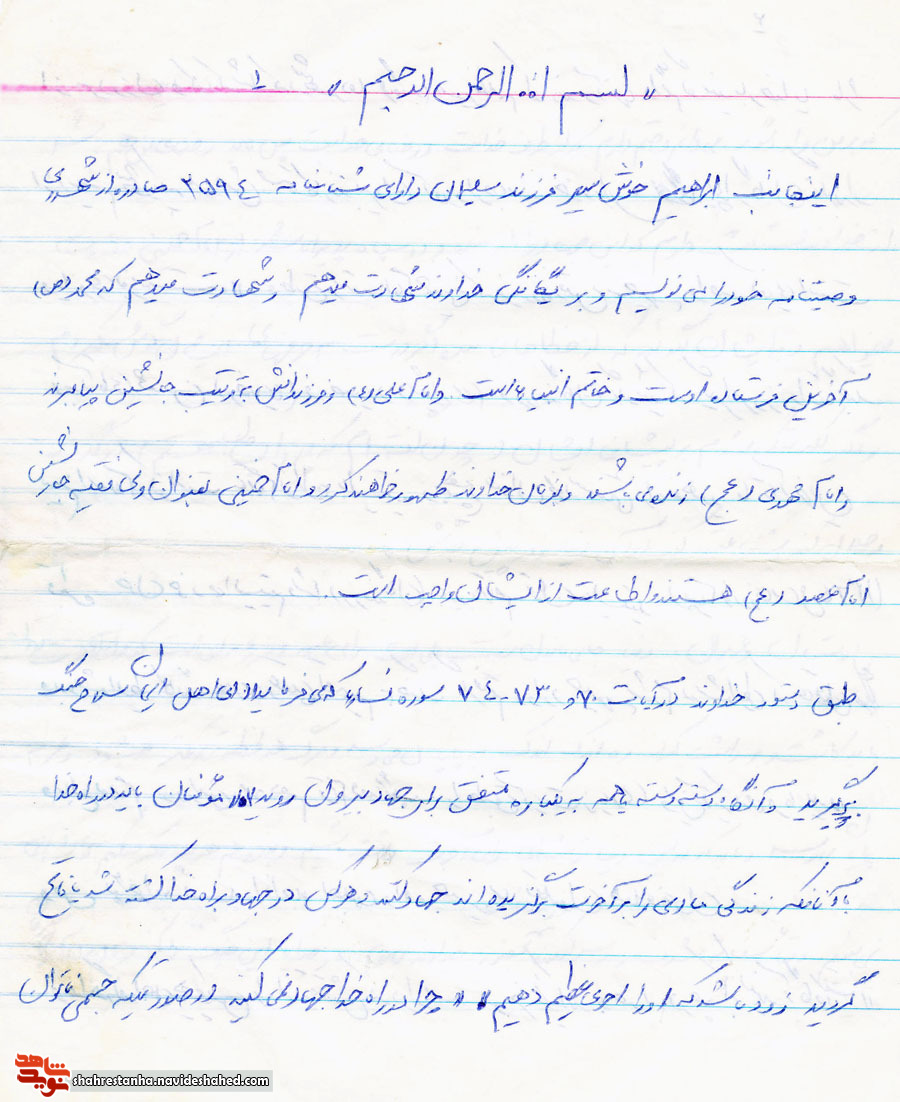 « بسم الله الرحمن الرحیم » ۱
اینجانب ابراهیم خوش سیر فرزند سلیمان دارای شناسنامه ۳۵۹۴ صادره از شهرری
وصیتنامه خود را می نویسم و بر یگانگی خداوند شهادت میدهم و شهادت میدهم که محمد (ص)
آخرین فرستاده اوست و خاتم انبیاء است. و امام علی (ع) و فرزندانش به ترتیب جانشین پیامبرند
و امام مهدی (عج) زنده می باشد و بفرمان خداوند ظهور خواهند کرد و امام خمینی بعنوان ولی فقیه جانشین
امام عصر (عج) هستند و اطاعت از ایشان واجب است.
طبق دستور خداوند در آیات ۷۰ و ۷۳-۷۴ سوره نساء که می فرماید ای اهل ایمان سلاح جنگ
برگیرید و آنگاه دسته دسته یا همه به یکباره متفق برای جهاد بیرون روید مؤمنان باید در راه خدا
با آنانکه زندگی مادی را بر آخرت برگزیده اند جهاد کنند و هر کس در جهاد براه خدا کشته شد یا فاتح
گردید زود باشد که او را اجری عظیم دهیم » « چرا در راه خدا جهاد نمی کنید در صورتیکه جمعی ناتوان
نوید شاهد
shahrestanha.navideshahed.com